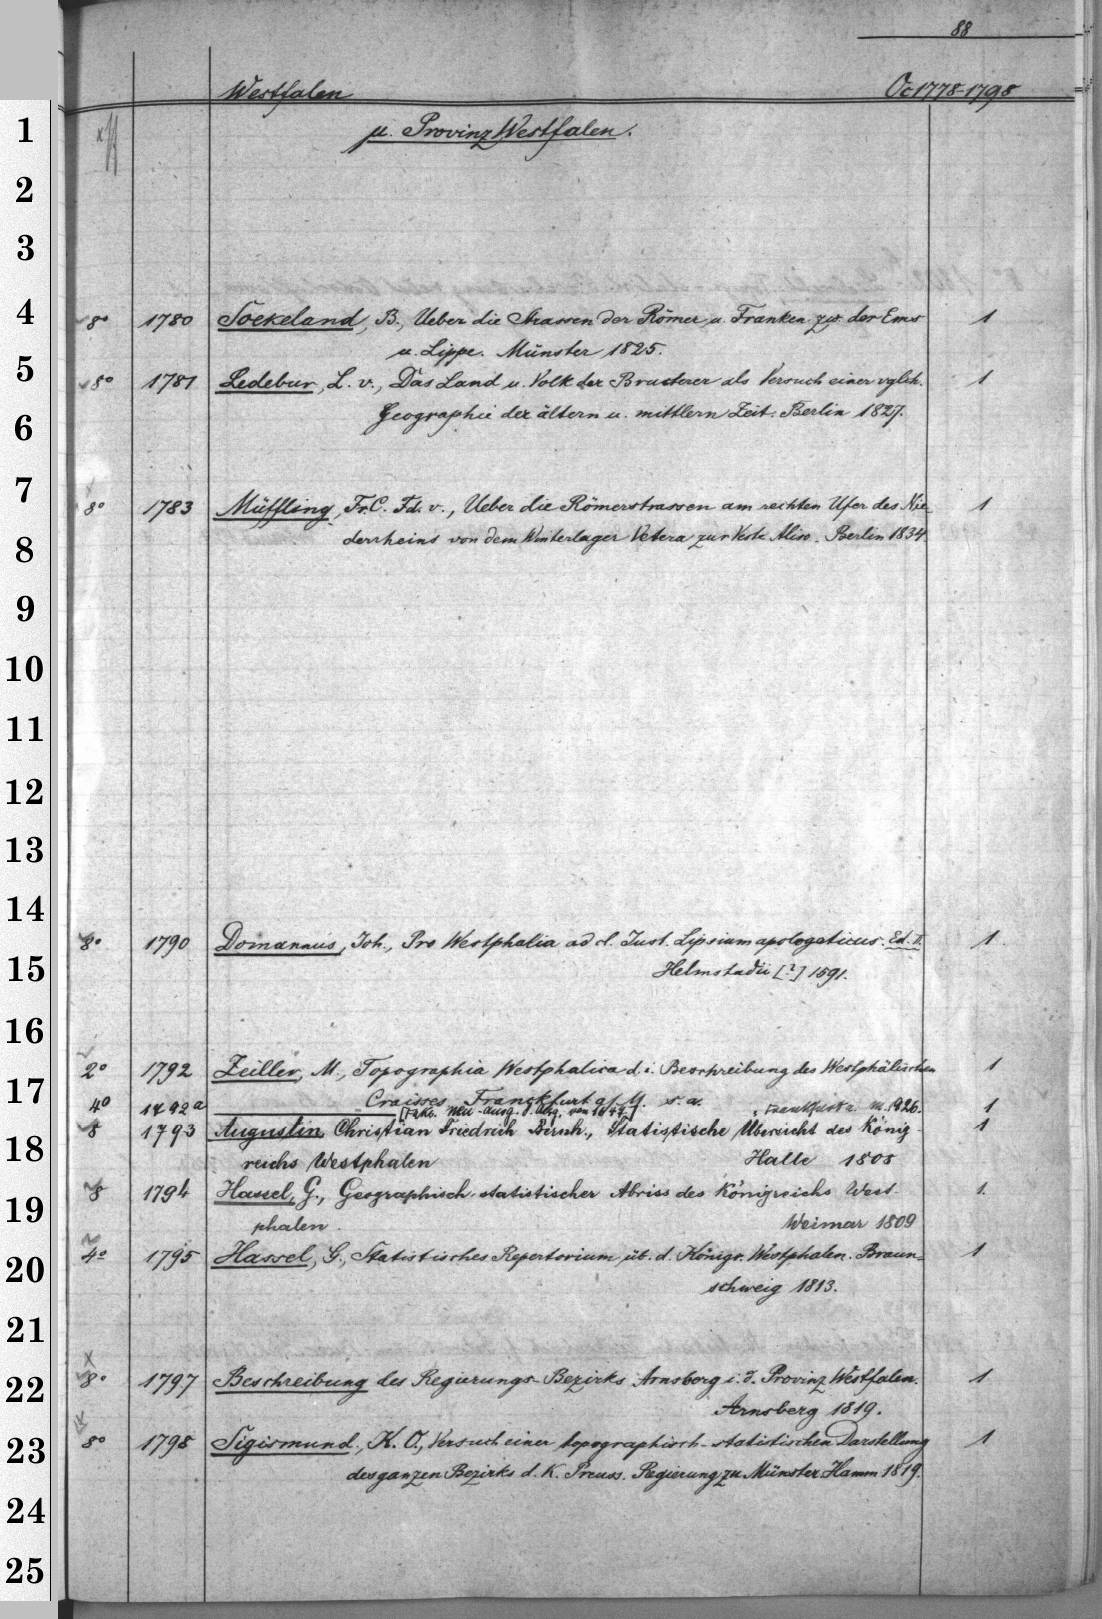 88
Westfalen Oc 1778-1798
u. Provinz Westfalen.
8° 1780 Soekeland, B., Ueber die Strassen der Römer u. Franken zw. der Ems 1
u. Lippe. Münster 1825.
8° 1781 Ledebur, L. v., Das Land u. Volk der Bructerer als Versuch einer vglch. 1
Geographie der ältern u. mittlern Zeit. Berlin 1827.
8° 1783 Müffling, Fr. C. Fd. v., Ueber die Römerstrassen am rechten Ufer des Nie 1
derrheins von dem Winterlager Vetera zur Veste Aliso. Berlin 1834.
8° 1790 Domannus, Joh., Pro Westphalia ad cl. Just. Lipsium apologeticus. Ed. I. 1
Helmstadii [?] 1591.
2° 1792 Zeiller, M., Topographia Westphalica d. i. Beschreibung des Westphälischen 1
Craisses. Franckfurt a/M. s. a.
4° 1792a [Faks. Neu-Ausg. d. Ausg. von 1647] Frankfurt a. M. 1926. 1
8 1793 Augustin, Christian Friedrich Bernh., Statistische Übersicht des König- 1
reichs Westphalen Halle 1808
8 1794 Hassel, G., Geographisch-statistischer Abriss des Königreichs West- 1.
phalen. Weimar 1809
4° 1795 Hassel, G., Statistisches Repertorium üb. d. Königr. Westphalen. Braun= 1
schweig 1813.
8° 1797 Beschreibung des Regierungs-Bezirks Arnsberg i. d. Provinz Westfalen. 1
Arnsberg 1819.
8° 1798 Sigismund, K. O., Versuch einer topographisch-statistischen Darstellung 1
des ganzen Bezirks d. K. Preuss. Regierung zu Münster. Hamm 1819.
1
2
3
4
5
6
7
8
9
10
11
12
13
14
15
16
17
18
19
20
21
22
23
24
25